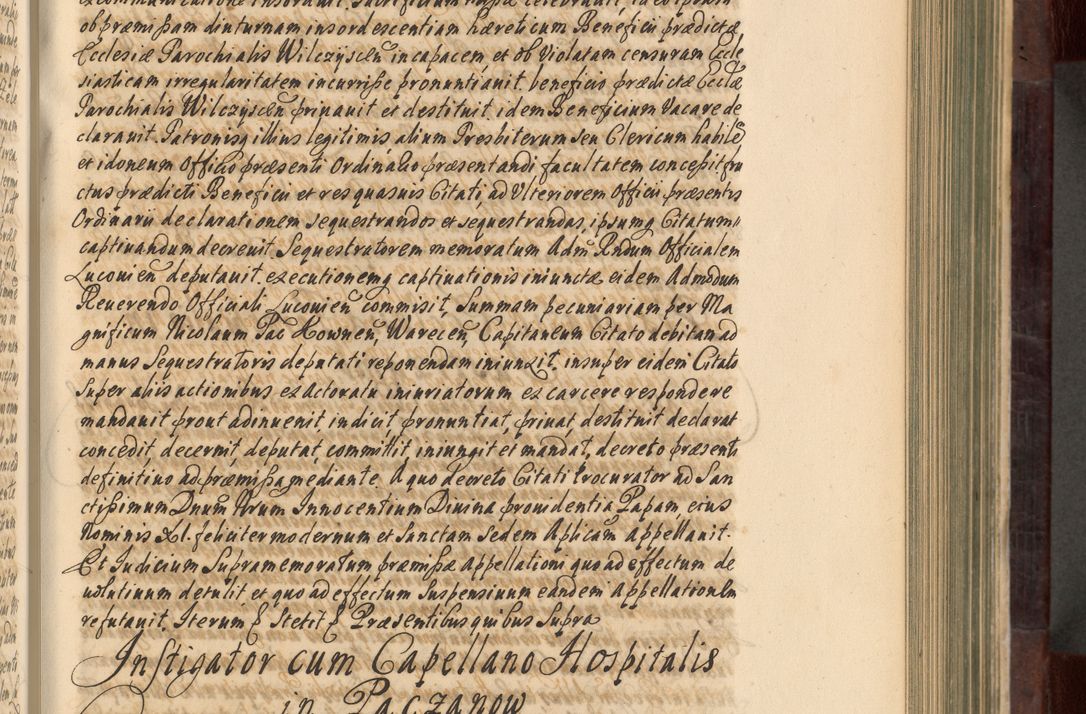 excommunicatione insorduit. Sacrificium
ob præmissam diuturnam insordescentiam hæreticum Beneficij prædictæ
Ecclesiæ Parochialis Wilczyscen̄ incapacem, et ob Violatam censuram Eccle
siasticam irregularitatem incurrisse pronuntiauit. beneficio prædictæ Ecclæ
Parochialis Wilczyscen̄ priuauit et destituit, idem Beneficium Vacare de
clarauit. Patronisq illius legitimis alium Presbiterum seu Clericum habilē
et idoneum Officio præsenti Ordinario præsentandi facultatem concessit, fru
ctus prædicti Beneficij et res quasuis Citati, ad Vlteriorem Officij præsentis
Ordinarij declarationem sequestrandos et sequestrandas, ipsumq Citatum
captiuandum decreuit. Sequestratorem memoratum Adm̄ Rndum Officialem
Lucouien̄ deputauit. executionemq captiuationis iniunctæ eidem Admodum
Reuerendo Officiali Lucouien̄ commisit, Summam pecuniariam per Ma
gnificum Nicolaum Pac Kownen̄, Warecen̄, Capitaneum Citato debitam ad
manus Sequestratoris deputati reponendam iniunxit. insuper eidem Citato
super alijs actionibus ex actoratu iniuriatorum ex carcere respondere
mandauit prout adinuenit, indicit, pronuntiat, priuat, destituit declarat
concedit, decernit, deputat, committit, iniungit et mandat, decreto præsenti
definitiuo ad præmissa mediante. A quo decreto Citati Procurator ad San
ctissimum Dnum Nrum Innocentium Diuina prouidentia Papam, eius
Nominis XI. feliciter modernum et Sanctam Sedem Aplicam appellauit.
Et Iudicium Supramemoratum præmissæ Appellationi quo ad effectum de
uolutiuum detulit, et quo ad effectum Suspensiuum eandem Appellationem
refutauit. Iterum & Stetit & Præsentibus quibus Supra
Instigator cum Capellano Hospitalis
in Paczanow